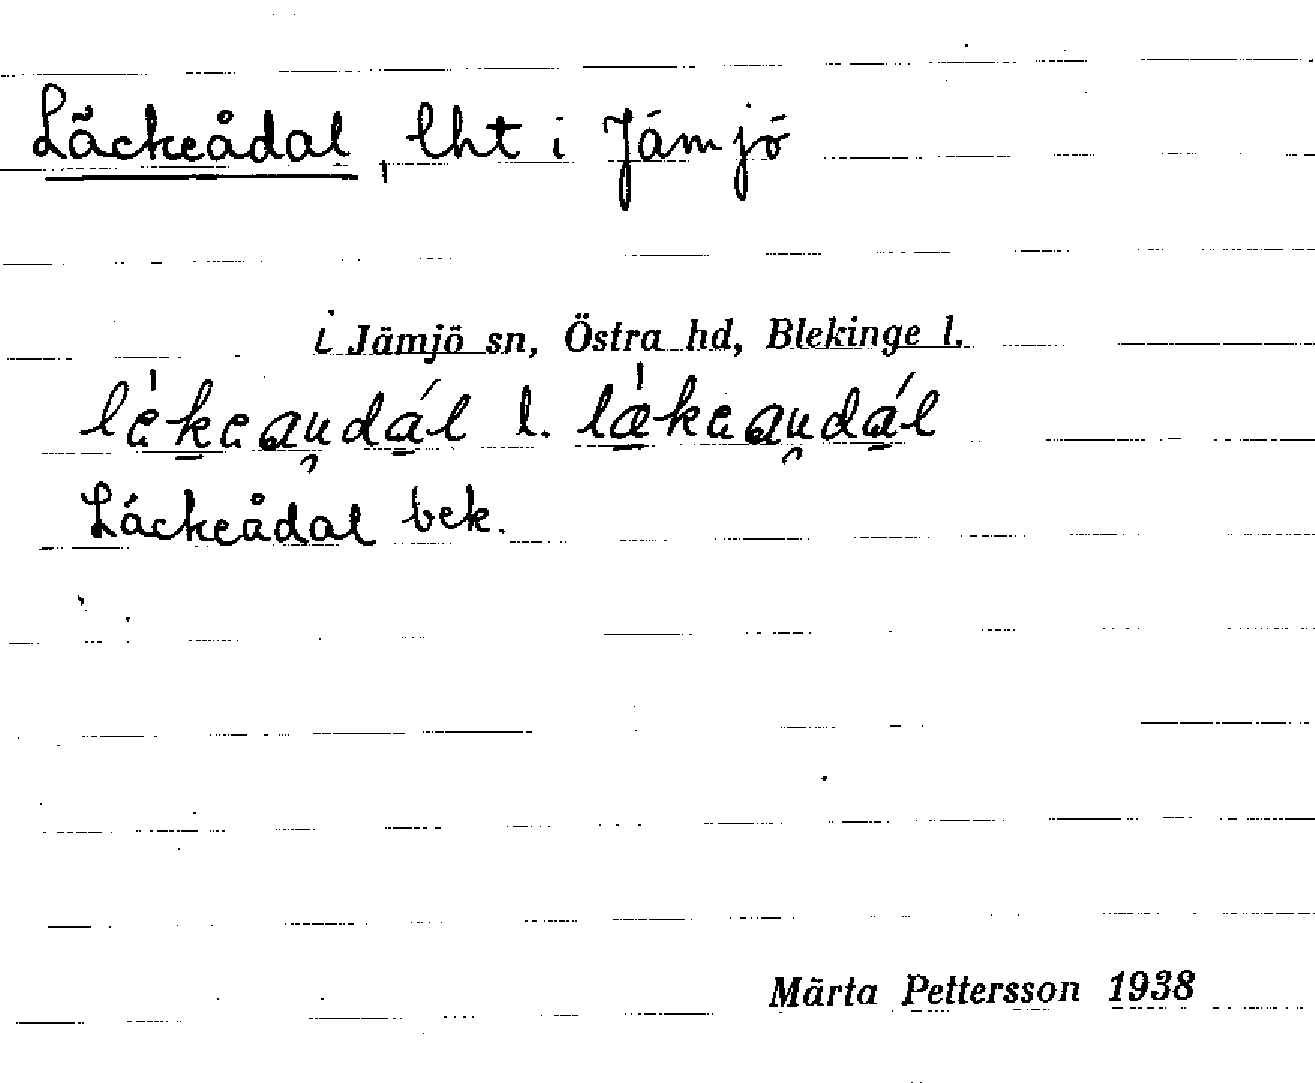 Läckeådal, lht i Jämjö
i Jämjö sn, Östra hd, Blekinge l.
lèkeaudál l. lækeaudál
Läckeådal bek.
Märta Pettersson 1938